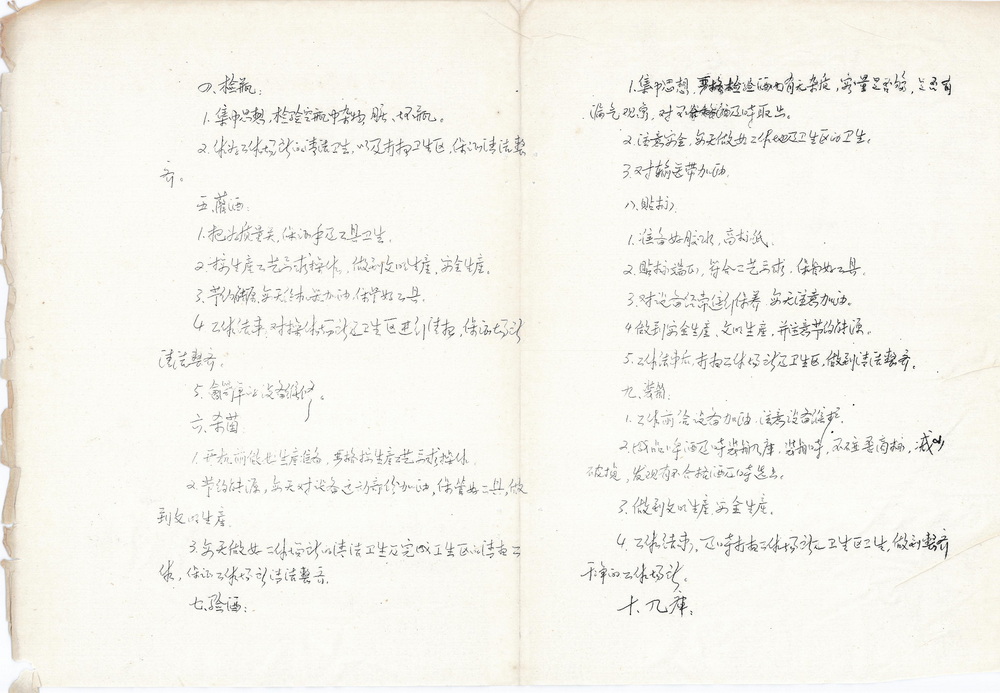 四、检瓶:
1.集中思想,检验空瓶中杂出脏、坏瓶。
2.作好工作场所的清洁卫生,以及打扫卫生区,保证清洁整
齐。
五、灌酒:
1.把好质量关,保证手及工具卫生.
2.按生产工艺要求操作,做到文明生产,安全生产。
3.节约能源,每天给机器加油,保管好工具.
4.工作结束,对操作场所及卫生区进行清扫,保证场所
清洁整齐.
5.设备维修。
六.杀菌:
1.开机前做好生产准备,严格按生产工艺要求操作.
2.节约能源,每天对设备运动部份加油,保管好工具,做
到文明生产.
3.每天做好工作场所的清洁卫生及完成卫生区的清扫工
作,保证工作场所清洁整齐.
七.验酒:
1.集中思想,严格检验酒内有无杂质,容量是否够,是否有
漏气现象,对不合格的及时取出。
2.注意安全,每天做好工作地及卫生区的卫生。
3.对输送带加油.
八.贴标:
1.准备好胶水,商标纸.
2.贴标端正,符合工艺要求.保管好工具.
3.对设备经常进行保养,每天注意加油.
4.做到安全生产、文明生产,并注意节约能源。
5.工作结束后,打扫工作场所及卫生区,做到清洁整齐.
九.装箱:
1.工作前给设备加油.注意设备维护.
2.成品酒及时装箱入库,装箱时,不要商标,减少
破损,发现有不合格酒及时选出.
3.做到文明生产,安全生产.
4.工作结束,及时打扫工作场所及卫生区卫生,做到整齐
干净的工作场所.
十.入库: